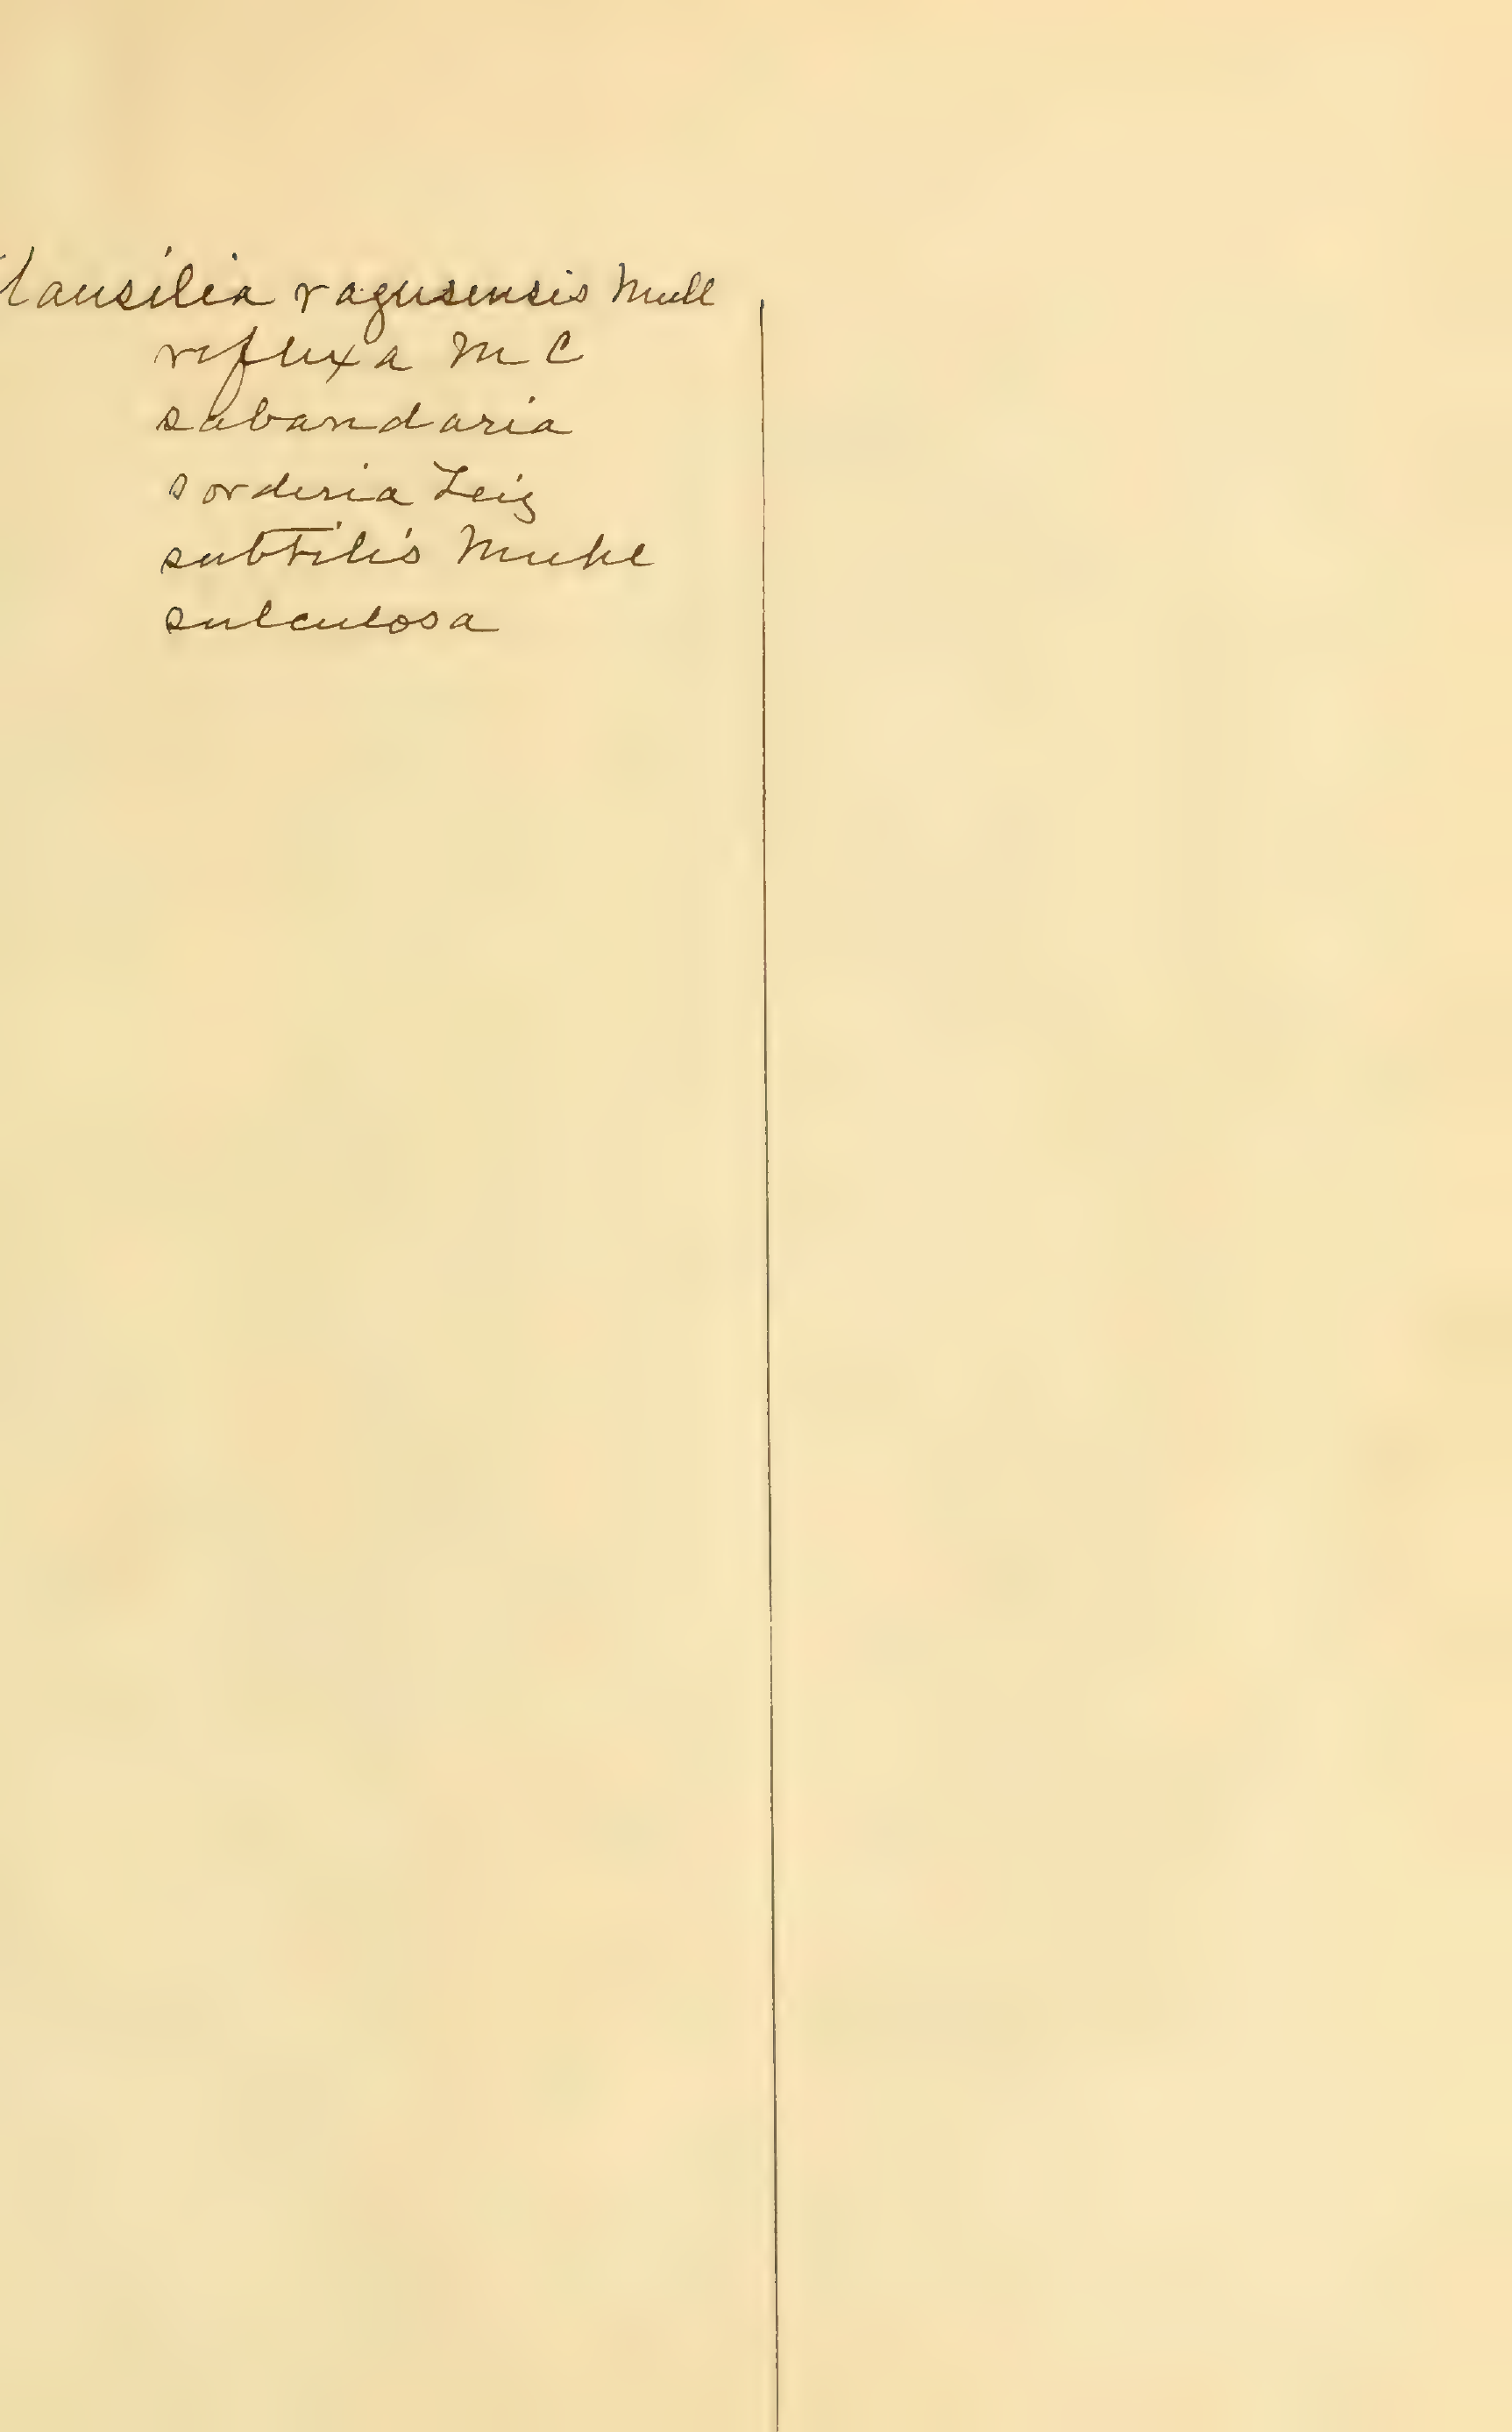 Clausilia ragusensis Mull
reflexa M C
sabandaria
sorderia Zeig
subtilis Muhl
sulculosa